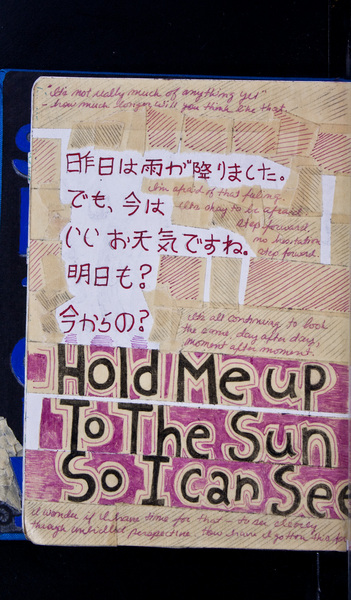 "It's not really much of anything yet"
- how much longer will you think like that.
昨日は雨が降りました。
でも、今は
いい お天気ですね。
明日も?
今からの?
i'm afraid of that feeling.
it's okay to be afraid
step forward.
no hesitation
step forward.
it's all continuing to look
the same, day after day,
moment after moment.
Hold Me up
To The Sun
So I can See
i wonder if i have time for that - to see clearly
through unbridled perspective. how have i gotten this far